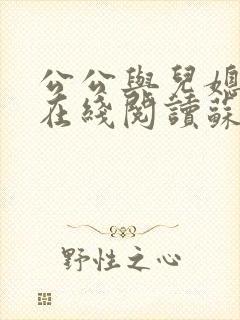 公公與兒媳
在綫閱讀蘇
野性之心